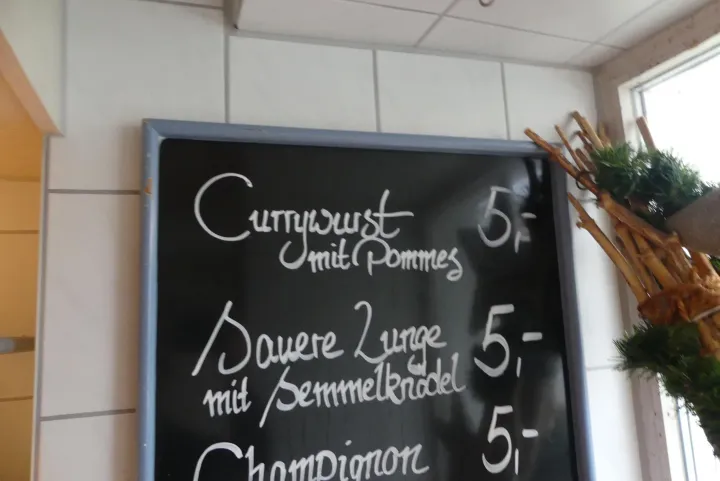 Currywurst 5,-
mit Pommes
Sauere Lunge 5,-
mit Semmelknödel
Champignon 5,-